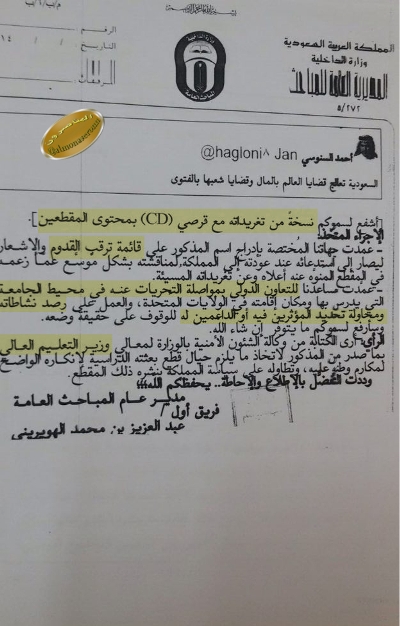 م/ب/١/ب
الرقم
التاريخ / / ١٤
المرفقات
المملكة العربية السعودية
وزارة الداخلية
المديرية العامة للمباحث
٥/٢٧٢
وزارة الداخلية
المباحث العامة
المناصرون
@almonaseron
أحمد السنوسي @hagloni٨ Jan
السعودية تعالج قضايا العالم بالمال وقضايا شعبها بالفتوى
[أشفع لسموكم نسخة من تغريداته مع قرصي (CD) بمحتوى المقطعين].
الإجراء المتخذ
- عمدت جهاتنا المختصة بإدراج اسم المذكور على قائمة ترقب القدوم والاشعار
ليصار إلى استدعائه عند عودته إلى المملكة لمناقشته بشكل موسع عما زعمه
في المقطع المنوه عنه أعلاه وعن تغريداته المسيئة.
- عمدت مساعدنا للتعاون الدولي بمواصلة التحريات عنه في محيط الجامعة
التي يدرس بها ومكان إقامته في الولايات المتحدة، والعمل على رصد نشاطاته
ومحاولة تحديد المؤثرين فيه أو الداعمين له للوقوف على حقيقة وضعه.
وسيرفع لسموكم ما يتوفر إن شاء الله.
الرأي: أرى الكتابة من وكالة الشئون الأمنية بالوزارة لمعالي وزير التعليم العالي
بما صدر من المذكور لاتخاذ ما يلزم حيال قطع بعثته الدراسية لإنكاره الواضح
لمكارم وطنه عليه، وتطاوله على سياسة المملكة بنشره ذلك المقطع.
وددت التفضل بالإطلاع والإحاطة.. يحفظكم الله،،،
مدير عام المباحث العامة
فريق أول /
عبد العزيز بن محمد الهويريني